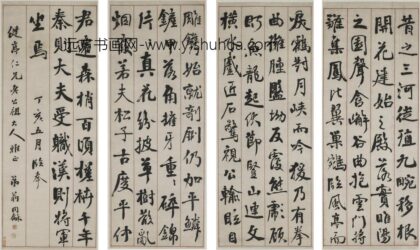 昔之三河徙植九畹移根
開花建始之殿落實睢陽
之園聲含嶰谷曲抱雲門將
雛集鳳比翼巢鴛臨風亭而
唳鶴對月峽而吟猨乃有拳
曲擁腫盤坳反覆熊彪顧
盼魚龍起伏節豎山連文
橫水蹙匠石驚視公輸眩目
雕鐫始就剞劂仍加平鱗
鏟甲落角摧牙重重碎錦
片片真花紛披草樹散亂
烟霞若夫松子古度平仲
君遷森梢百頃槎枿千年
秦則大夫受職漢則將軍
坐焉 丁亥五月臨奉
健齋仁兄老公祖大人雅正 弟翁同龢